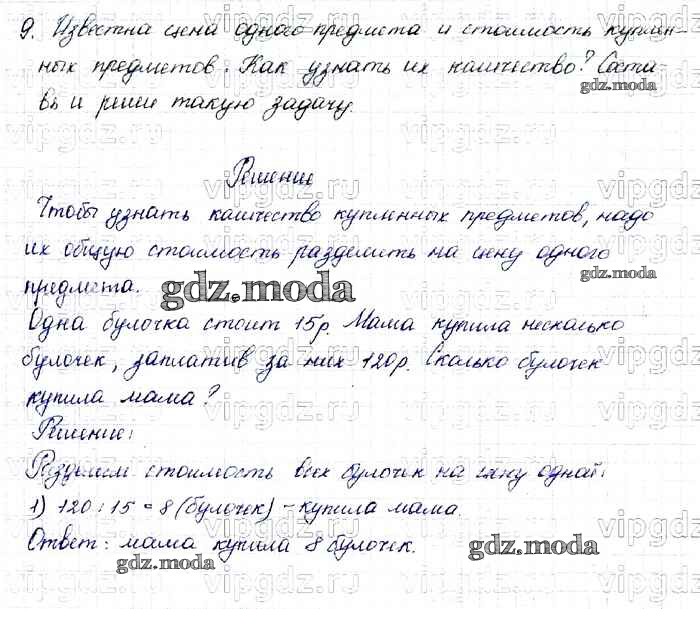 9. Известна цена одного предмета и стоимость куплен-
ных предметов. Как узнать их количество? Соста
вь и реши такую задачу.
gdz.moda
Решение
Чтобы узнать количество купленных предметов, надо
их общую стоимость разделить на цену одного
предмета.
gdz.moda
gdz.moda
Одна булочка стоит 15р. Мама купила несколько
булочек, заплатив за них 120р. Сколько булочек
купила мама?
Решение:
Разделим стоимость всех булочек на цену одной:
1) 120 : 15 = 8 (булочек) - купила мама.
Ответ: мама купила 8 булочек.
gdz.moda
gdz.moda
vipgdz.ru